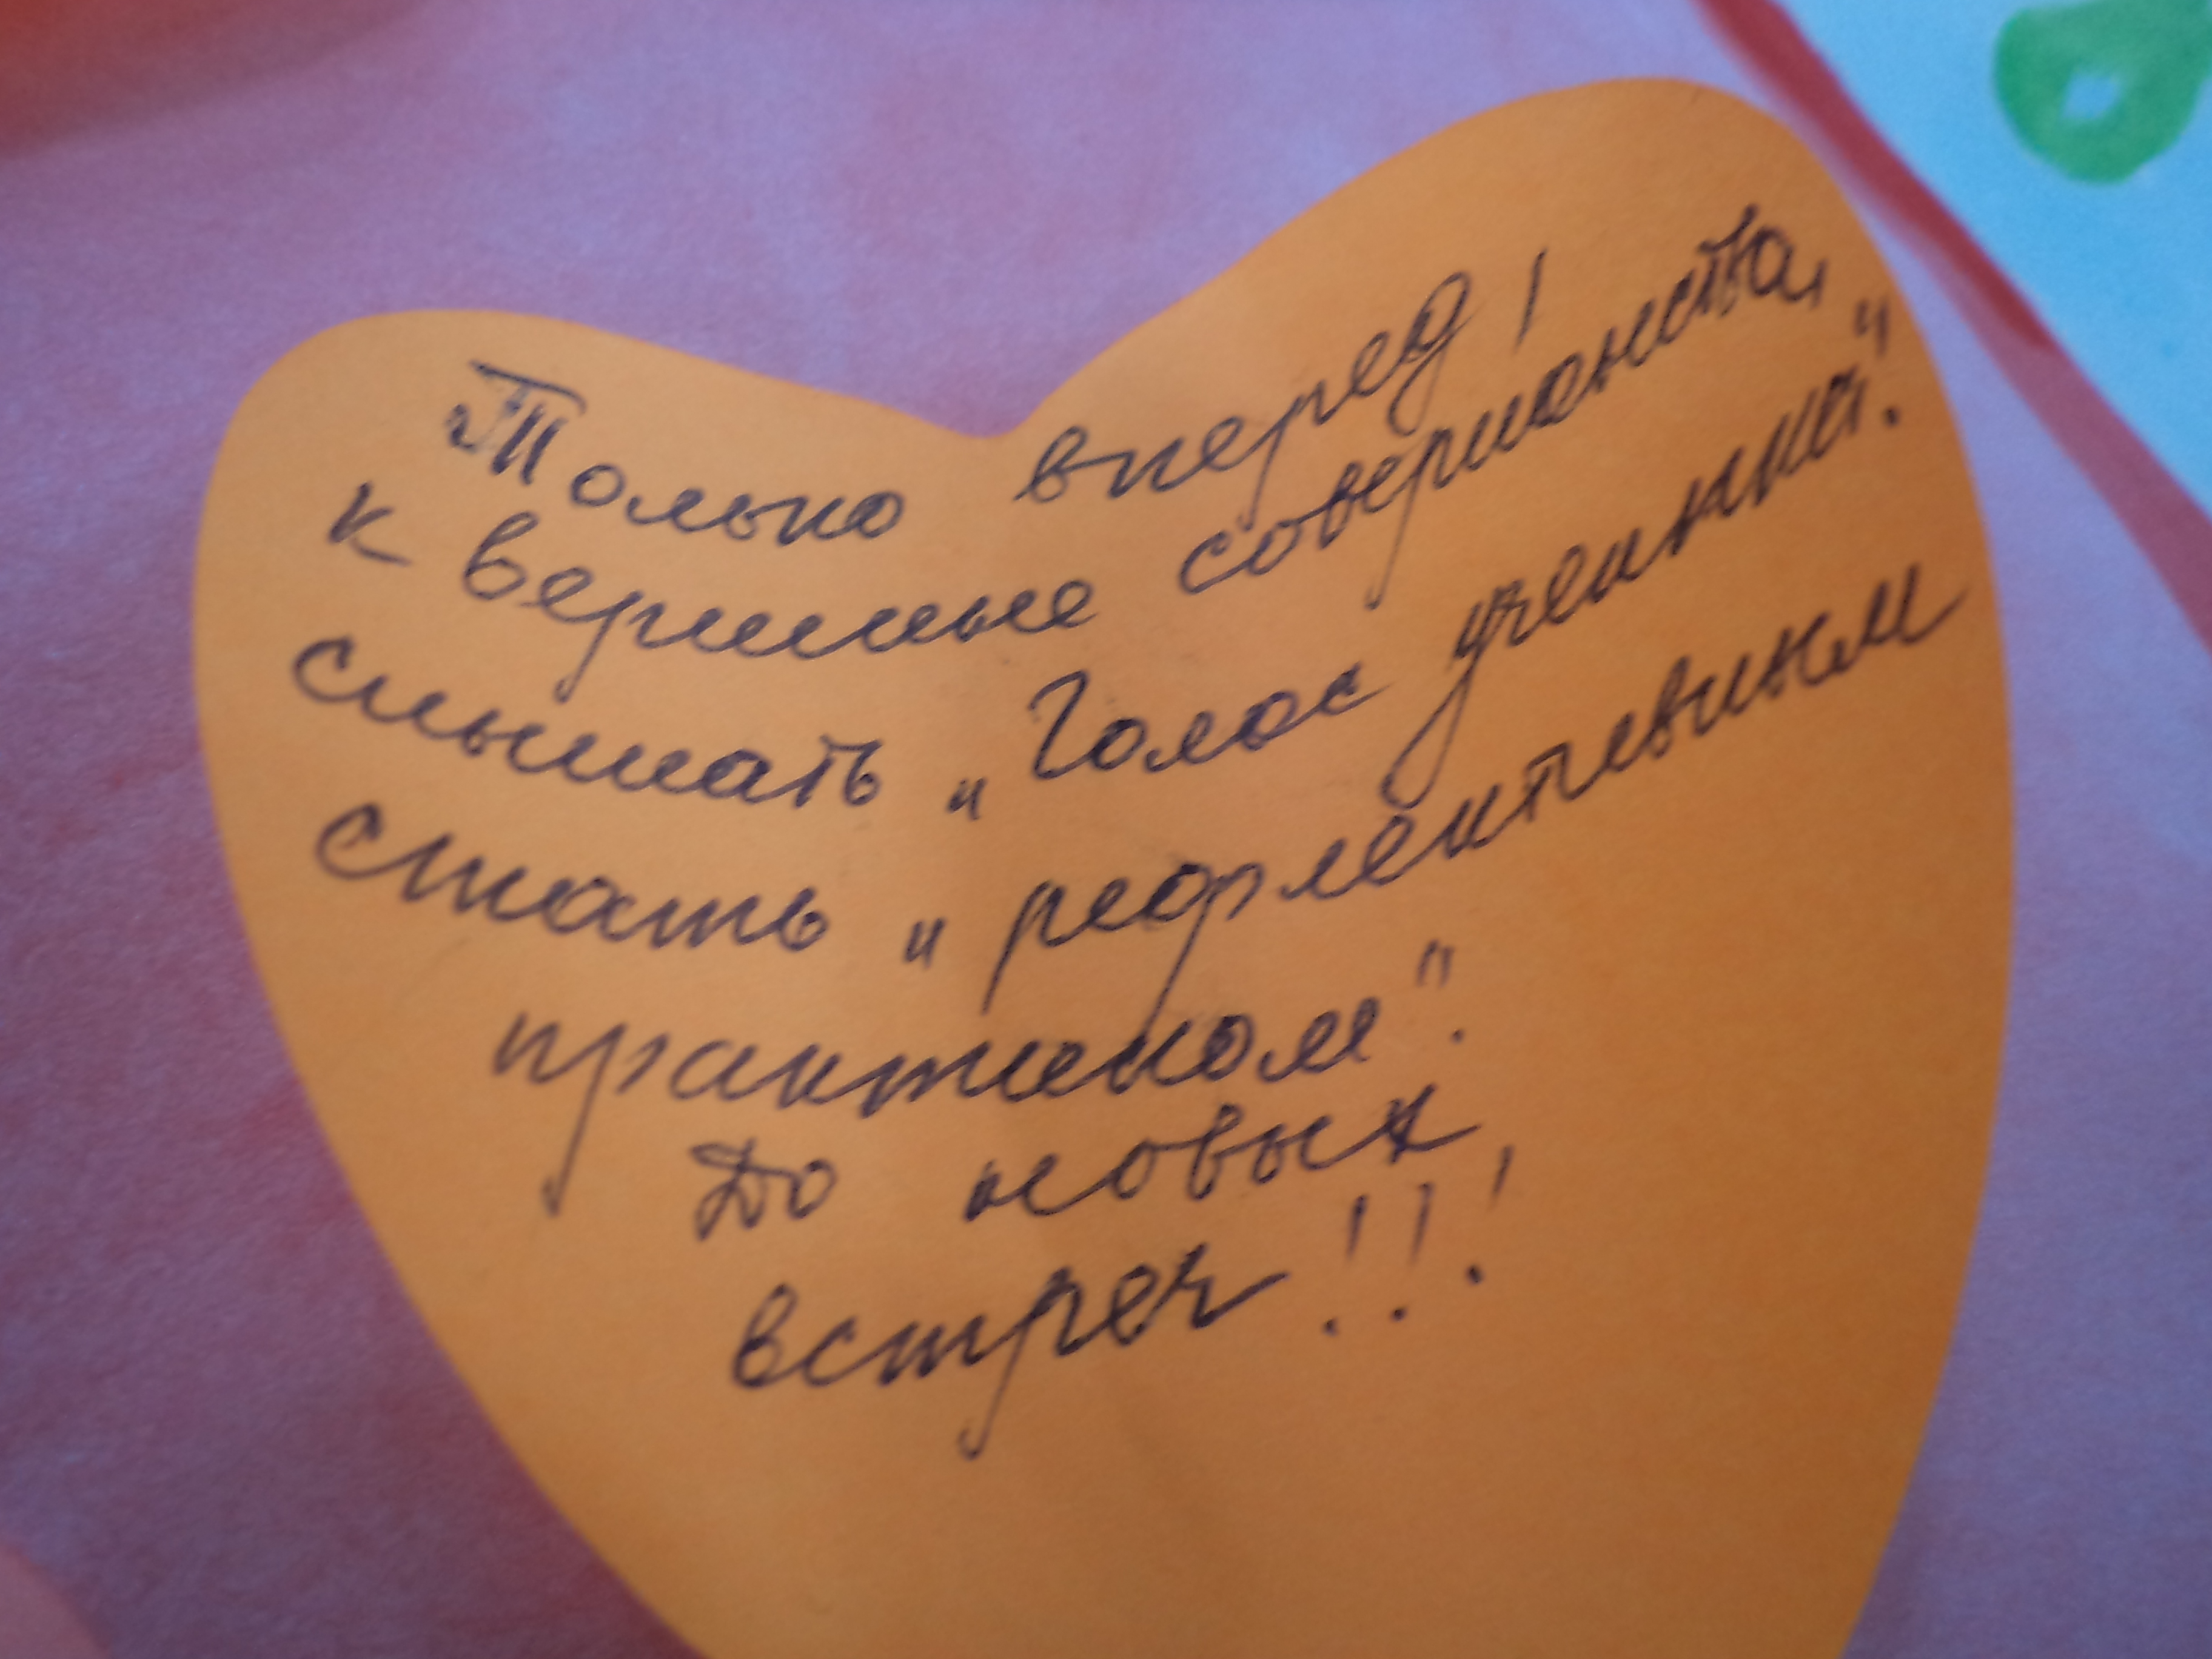 Только вперед!
к вершине совершенства,
слышать „Голос ученика".
стать „рефлективным
практиком".
До новых
встреч!!!